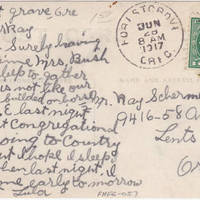 t grove Ore
Ray
Surely having
time Mrs. Bush
sleep to gether
is not like our
builded on bors
E. last night
t Congregational
oing to Country
ut I hope I sleep
hen last night. I
ome early to morrow
Lulor
FOREST GROVE
JUN
28
8 AM
1917
OREG.
Mr. Ray Scherme
9416-58 A
Lents
Or